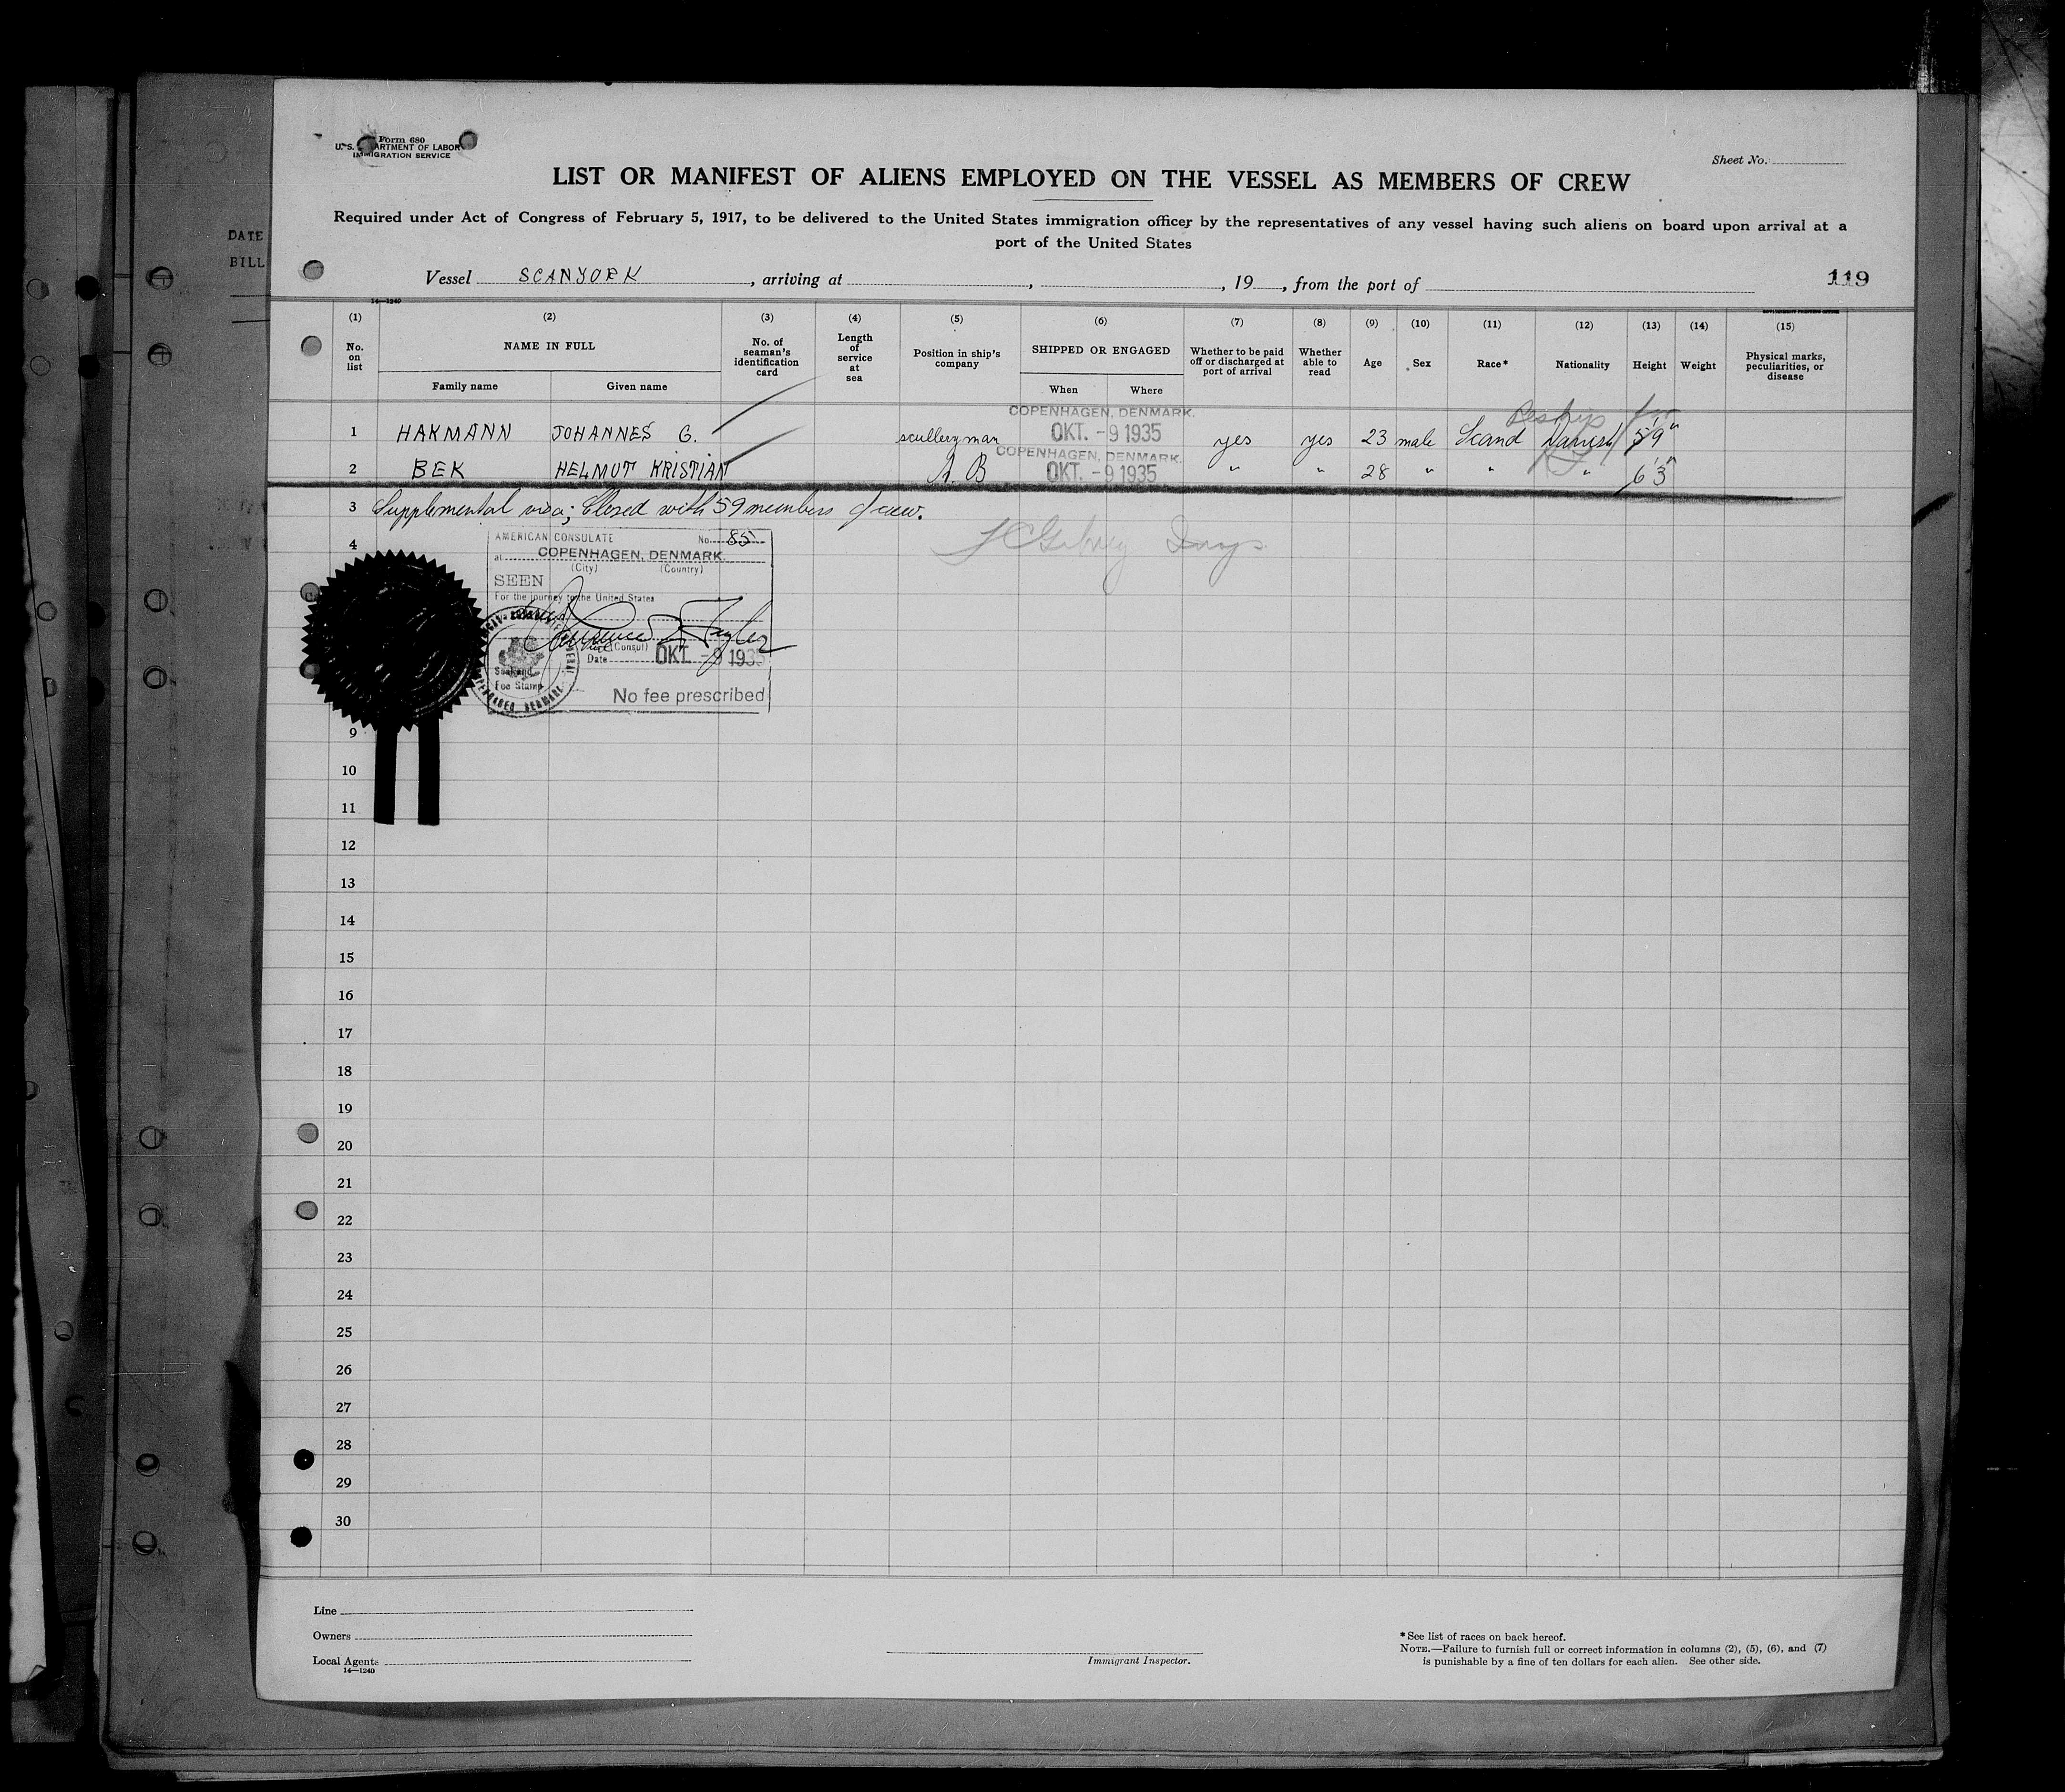 Form 680
U. S. DEPARTMENT OF LABOR
IMMIGRATION SERVICE
Sheet No.
LIST OR MANIFEST OF ALIENS EMPLOYED ON THE VESSEL AS MEMBERS OF CREW
Required under Act of Congress of February 5, 1917, to be delivered to the United States immigration officer by the representatives of any vessel having such aliens on board upon arrival at a
port of the United States
DATE
BILL
Vessel SCANYORK, arriving at , , 19 , from the port of 119
14—1240
(1) (2) (3) (4) (5) (6) (7) (8) (9) (10) (11) (12) (13) (14) (15)
No. on list NAME IN FULL Family name Given name No. of seaman's identification card Length of service at sea Position in ship's company SHIPPED OR ENGAGED When Where Whether to be paid off or discharged at port of arrival Whether able to read Age Sex Race* Nationality Height Weight Physical marks, peculiarities, or disease
COPENHAGEN, DENMARK.
1 HAKMANN JOHANNES G. scullery man OKT. -9 1935 yes yes 23 male Scand Danish 5'9"
COPENHAGEN, DENMARK.
2 BEK HELMUT KRISTIAN A. B OKT. -9 1935 " " 28 " " " 6'3"
3 Supplemental visa; Closed with 59 members of crew.
4
AMERICAN CONSULATE No. 85
at COPENHAGEN, DENMARK.
(City) (Country)
SEEN
For the journey to the United States
(Consul)
Date OKT. -9 1935
Fee Stamp
No fee prescribed
9
10
11
12
13
14
15
16
17
18
19
20
21
22
23
24
25
26
27
28
29
30
Line
Owners
Local Agents
14—1240
Immigrant Inspector.
*See list of races on back hereof.
NOTE.—Failure to furnish full or correct information in columns (2), (5), (6), and (7)
is punishable by a fine of ten dollars for each alien. See other side.